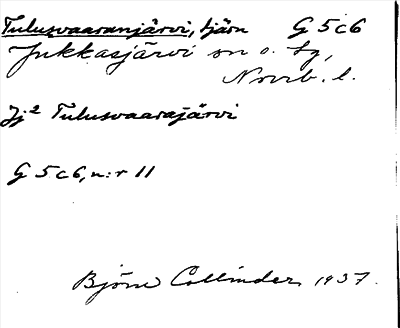 Tulusvaaranjärvi, tjärn G 5c6
Jukkasjärvi sn o. tg,
Norrb. l.
Jj² Tulusvaarajärvi
G 5c6, n:r 11
Björn Collinder 1937.